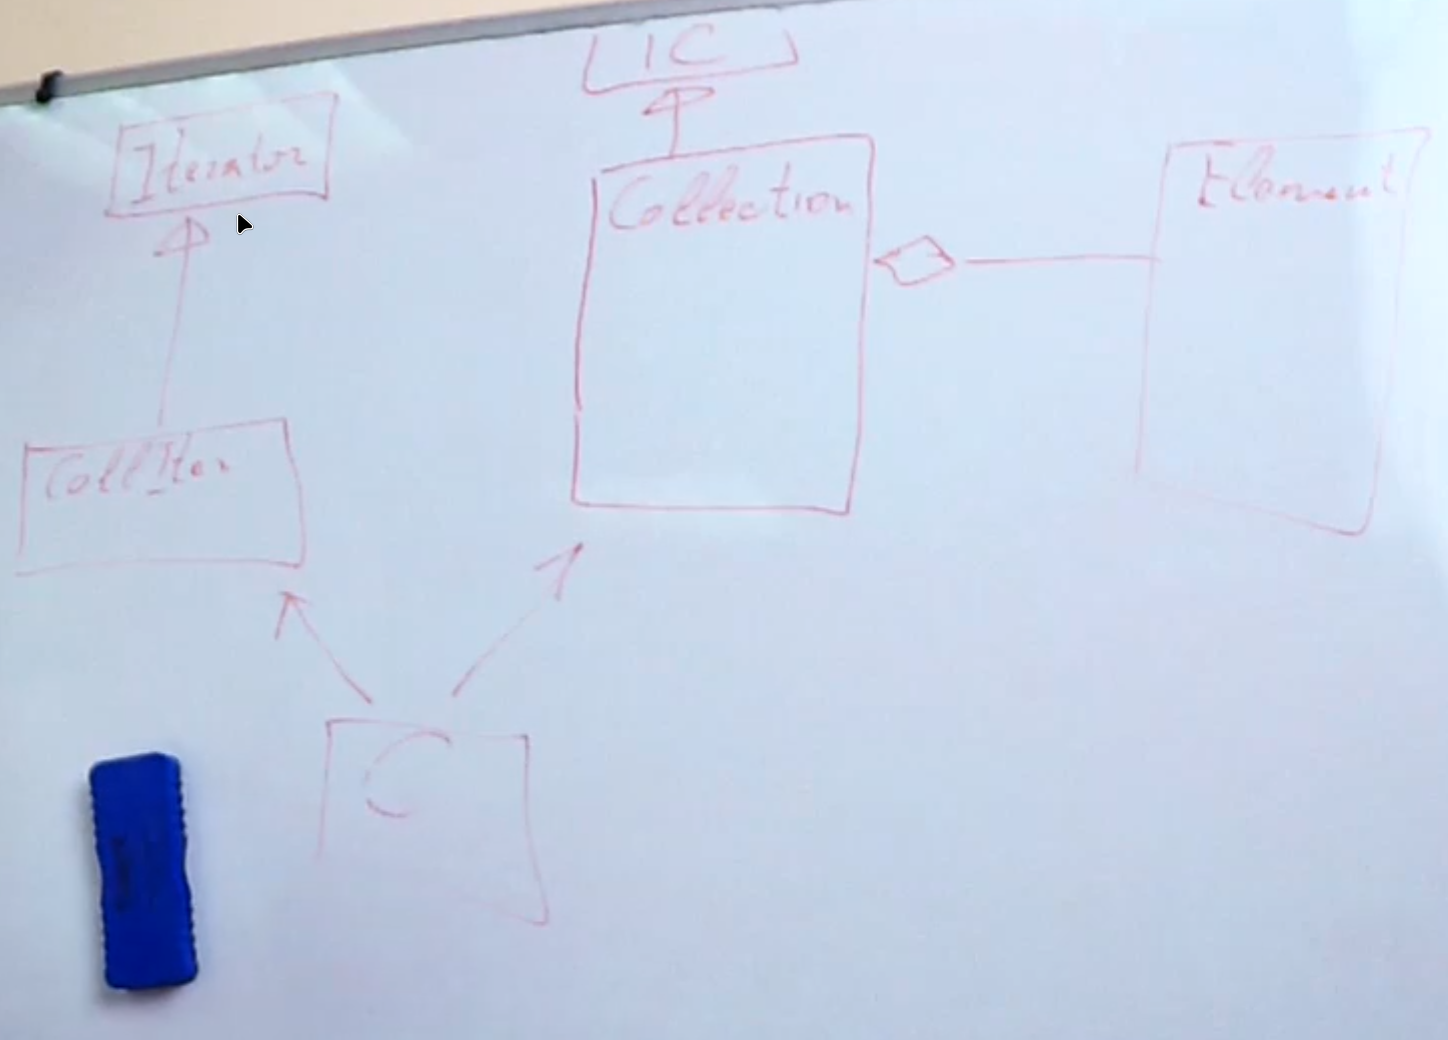 IC
Iterator
Collection
Element
CollIter
C